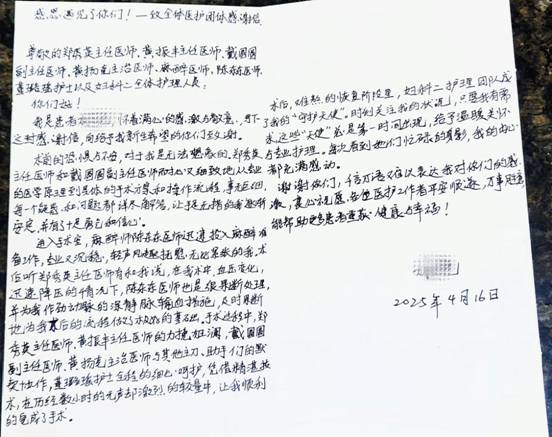 感恩遇见了你们！一致全体医护团体感谢信
尊敬的郑秀英主任医师、黄振丰主任医师、戴国国
副主任医师、黄扬克主治医师、麻醉医师、陈东东医师、
护士以及妇科二全体护理人员：
你们好！
我是患者 怀着满心的感激与敬意，写下
之封感谢信，向给予我新生希望的你们至致谢。
术前的恐惧与不安，对于我是无法想象的，郑秀英
主任医师和戴国国副主任医师耐心又细致地从专业
的医学原理到具体的手术方案和操作流程，事无巨细，
每一个疑惑和问题都详尽解答，让捉无措的我逐渐
安定，并有了十足的勇气和信心。
进入手术室，麻醉师陈东东医师迅速投入麻醉准
备工作，专业又沉稳，轻声风趣抚慰无比紧张的我，术
后听郑秀英主任医师有和我说，在我术中，血压变化，
迅速降压的情况下，陈东东医师也是很果断处理，
并为我作动动脉的深静脉输血措施，及时果断
地为我术后的流程做了极好的基础。手术过程中，郑
秀英主任医师、黄振丰主任医师的力挽狂澜，戴国国
副主任医师、黄扬克主治医师与其他主刀、助手们的默
契协作，护士全程的细心呵护，凭借精湛技
术，在历经数小时的无声却激烈的较量中，让我顺利
的完成了手术。
术后，难熬的恢复阶段里，妇科二护理团队成
了我的“守护天使”。时刻关注我的状况，只要我有需
求，这些“天使”总是第一时间出现，给予温暖关怀
与专业护理。每次看到她们忙碌的身影，我的内心
都充满感动。
谢谢你们，千言万语难以表达我对你们的感
激，衷心祝愿各位医护工作者平安顺遂，万事胜意，
能帮助更多患者重获健康与幸福！
2025年4月16日